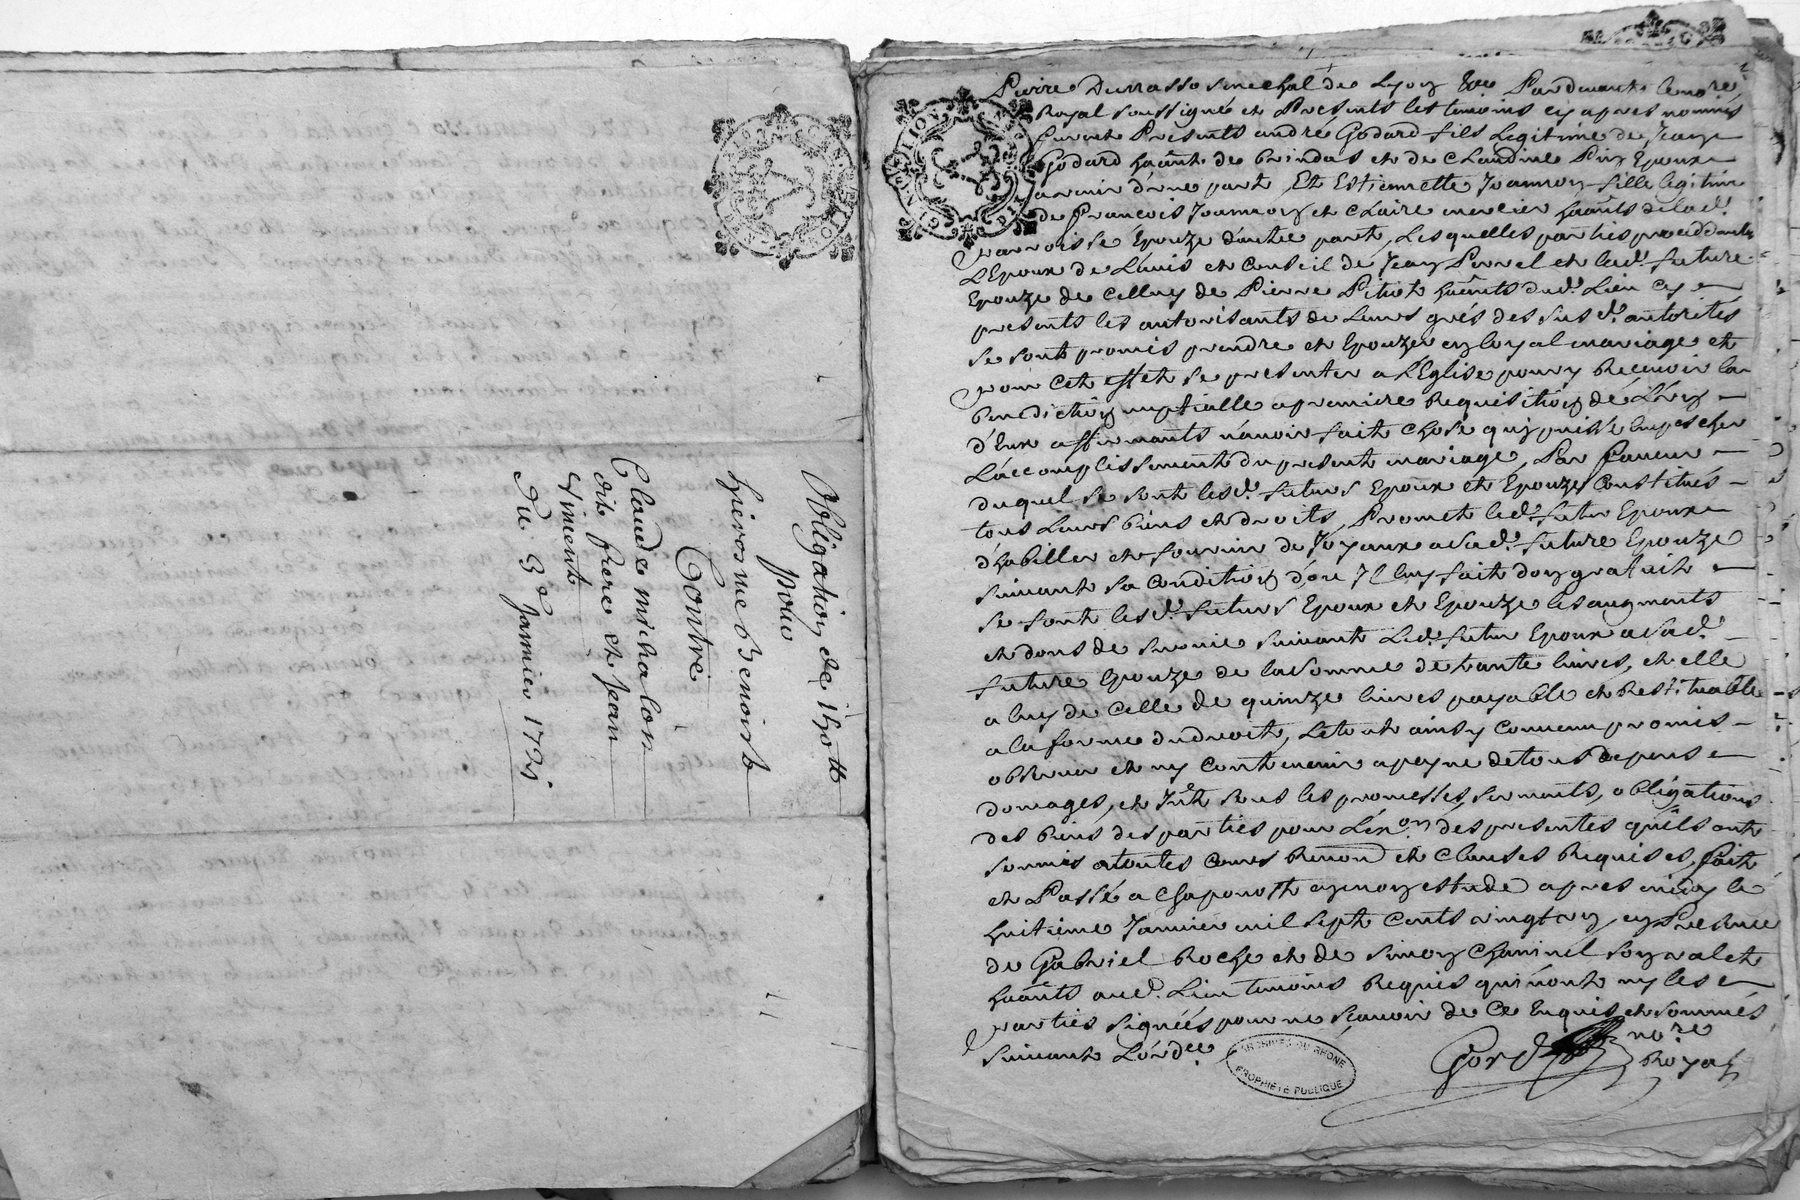 Obligation de 150  tt
pour
hierosme benoist
Contre
Claude michalon
dit frere et jean
eymente
Du 3e Janvier 1721
Pierre Durrasse senechal de Lyon Par devant le nore
Royal soussigné et Presents les temoins cy apres nommés
furent Presents andré Godard fils Legitime de Jean
Godard haânt de brindas et de Claudine Puy Epoux
avenir d'une part, Et Estiennette Joannon fille legitime
de François Joannon et Claire mercier haânts de lad.
parroisse Epouze d'autre part, Lesquelles parties procedants
L'Epoux de L'avis et Conseil de Jean et lad. future
Epouze de Celluy de Pierre haânts dud. Lieu cy
presents les autorisants de Leurs grés des susd. autorités
se sont promis prendre et Epouzer en loyal mariage et
pour Cet effet se presenter a L'Eglise pour y Recevoir la
benediction nuptialle a premiere Requisition de L'un
d'Eux affirmants n'avoir fait Chose qui puisse Empescher
L'accomplissement du present mariage, Par faveur
duquel se sont lesd. futurs Epoux et Epouze Constitués
tous Leurs biens et droits, Promet led. futur Epoux
d'habiller et fournir de Joyaux a sad. future Epouze
suivant sa Condition d'ou Il luy fait don gratuit
se font lesd. futurs Epoux et Epouze les augments
et dons de survie suivant Led. futur Epoux a sad.
future Epouze de la somme de trante livres, et elle
a luy de Celle de quinze livres payable et Restituable
a la forme du droit, L'etout ainsy Convenu promis
observer et ny Contrevenir a peyne de tous depens
domages, et Intts sous les promesses, serments, obligations
des biens des parties pour L'exon des presentes qu'ils ont
soumis a toutes Cours Renond et Clauses Requises, fait
et Passé a Chaponost en mon estude apres midy le
huitieme Janvier mil sept Cents vingt un, en Presence
de Gabriel Roche et de Simon Chaninel son valet
haânts aud. Lieu temoins Requis qui n'ont ny les
parties signées pour ne sçavoir de Ce Enquis et sommés
suivant L'ordce
nore
Royal
ARCHIVES DU RHONE
PROPRIÉTÉ PUBLIQUE